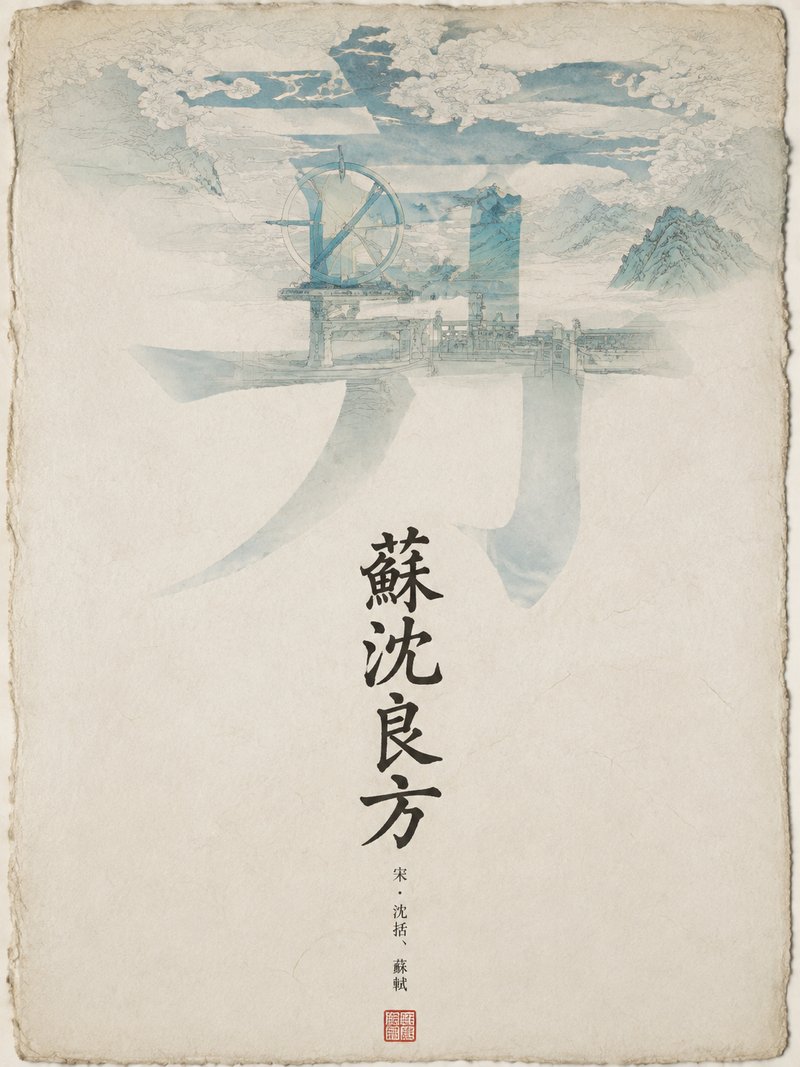 蘇沈良方
宋·沈括、蘇軾